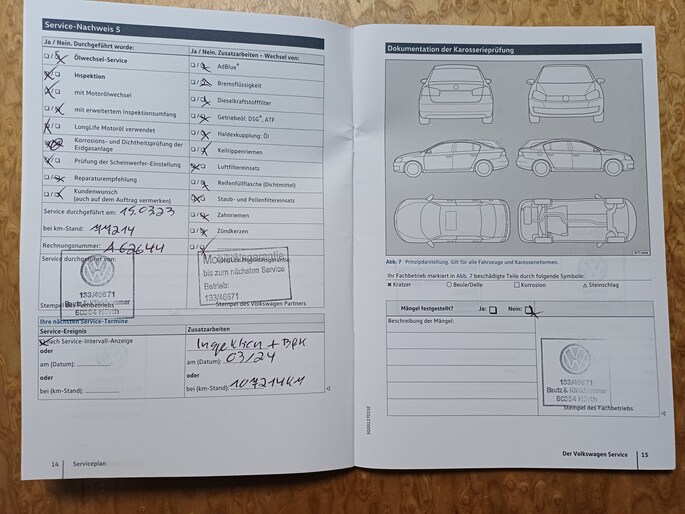 Service-Nachweis 5
Ja / Nein. Durchgeführt wurde:
Ölwechsel-Service
Inspektion
mit Motorölwechsel
mit erweitertem Inspektionsumfang
LongLife Motoröl verwendet
Korrosions- und Dichtheitsprüfung der
Erdgasanlage
Prüfung der Scheinwerfer-Einstellung
Reparaturempfehlung
Kundenwunsch
(auch auf dem Auftrag vermerken)
Service durchgeführt am: 15.03.23
bei km-Stand: 77214
Rechnungsnummer: A 62644
Service durchgeführt von:
133/46671
Bautz & Klinkhammer
50354 Hürth
Stempel des Fachbetriebs
Ja / Nein. Zusatzarbeiten – Wechsel von:
AdBlue®
Bremsflüssigkeit
Dieselkraftstofffilter
Getriebeöl: DSG®, ATF
Haldexkupplung: Öl
Keilrippenriemen
Luftfiltereinsatz
Reifenfüllflasche (Dichtmittel)
Staub- und Pollenfiltereinsatz
Zahnriemen
Zündkerzen
Mobilitätsgarantie
bis zum nächsten Service
Betrieb:
133/46671
Stempel des Volkswagen Partners
Ihre nächsten Service-Termine
Service-Ereignis
nach Service-Intervall-Anzeige
oder
am (Datum):
oder
bei (km-Stand):
Zusatzarbeiten
Inspektion + BFK
am (Datum): 03/24
oder
bei (km-Stand): 107214 KM
14 Serviceplan
Dokumentation der Karosserieprüfung
Abb. 7 Prinzipdarstellung. Gilt für alle Fahrzeuge und Karosserieformen.
Ihr Fachbetrieb markiert in Abb. 7 beschädigte Teile durch folgende Symbole:
× Kratzer ○ Beule/Delle □ Korrosion △ Steinschlag
Mängel festgestellt? Ja: Nein:
Beschreibung der Mängel:
133/46671
Bautz & Klinkhammer
50354 Hürth
Stempel des Fachbetriebs
Der Volkswagen Service 15